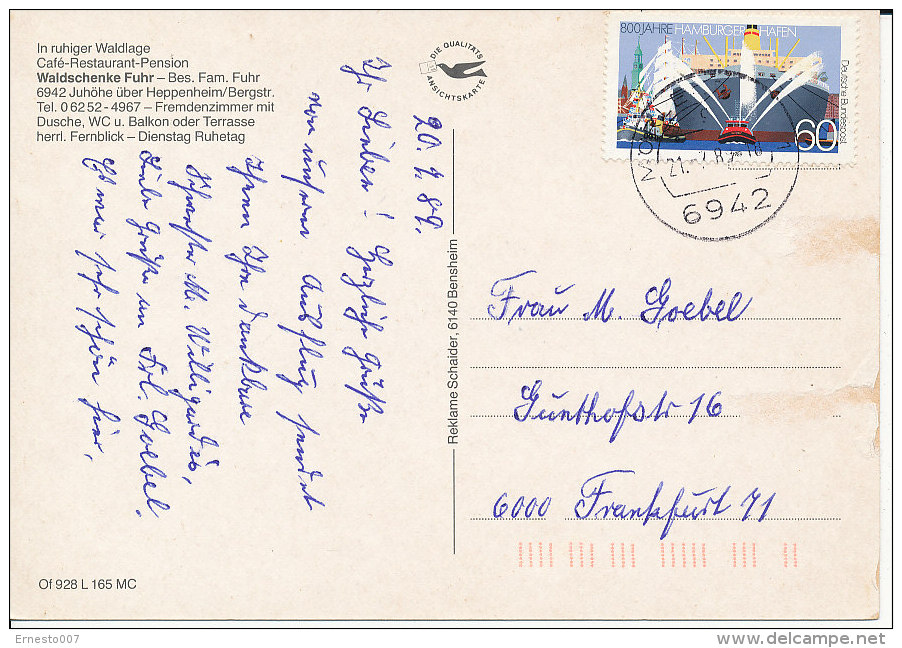 In ruhiger Waldlage
Café-Restaurant-Pension
Waldschenke Fuhr – Bes. Fam. Fuhr
6942 Juhöhe über Heppenheim/Bergstr.
Tel. 0 62 52 - 4967 – Fremdenzimmer mit
Dusche, WC u. Balkon oder Terrasse
herrl. Fernblick – Dienstag Ruhetag
DIE QUALITÄTS
ANSICHTSKARTE
800 JAHRE HAMBURGER HAFEN
Deutsche Bundespost
60
6942
20.7.89.
Ihr Lieben! Herzliche Grüße
von unserem Ausflug sendet
Ihnen Ihre dankbare
Schwester M. Willigardis,
Liebe Grüße an Frl. Goebel.
Es war sehr schön hier.
Reklame Schaider, 6140 Bensheim
Frau M. Goebel
Gunthofstr 16
6000 Frankfurt 71
Of 928 L 165 MC
Ernesto007
delcampe.net